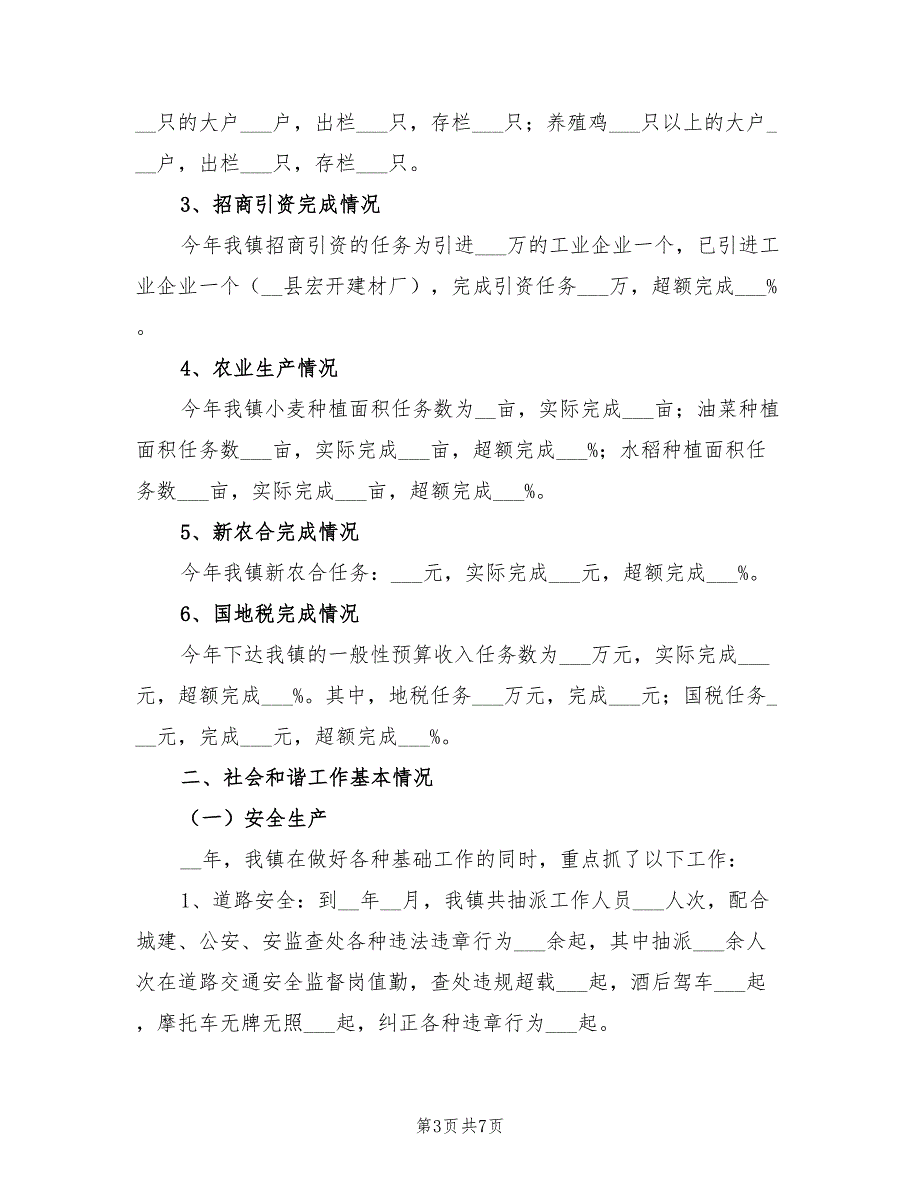 __只的大户___户，出栏___只，存栏___只；养殖鸡___只以上的大户_
__户，出栏___只，存栏___只。
3、招商引资完成情况
今年我镇招商引资的任务为引进___万的工业企业一个，已引进工
业企业一个（__县宏开建材厂），完成引资任务___万，超额完成___%
。
4、农业生产情况
今年我镇小麦种植面积任务数为__亩，实际完成___亩；油菜种植
面积任务数___亩，实际完成___亩，超额完成___%；水稻种植面积任
务数___亩，实际完成___亩，超额完成___%。
5、新农合完成情况
今年我镇新农合任务：___元，实际完成___元，超额完成___%。
6、国地税完成情况
今年下达我镇的一般性预算收入任务数为___万元，实际完成___
元，超额完成___%。其中，地税任务___万元，完成___元；国税任务_
__元，完成___元，超额完成___%。
二、社会和谐工作基本情况
（一）安全生产
__年，我镇在做好各种基础工作的同时，重点抓了以下工作：
1、道路安全：到__年__月，我镇共抽派工作人员___人次，配合
城建、公安、安监查处各种违法违章行为___余起，其中抽派___余人
次在道路交通安全监督岗值勤，查处违规超载___起，酒后驾车___起
，摩托车无牌无照___起，纠正各种违章行为___起。
第3页共7页